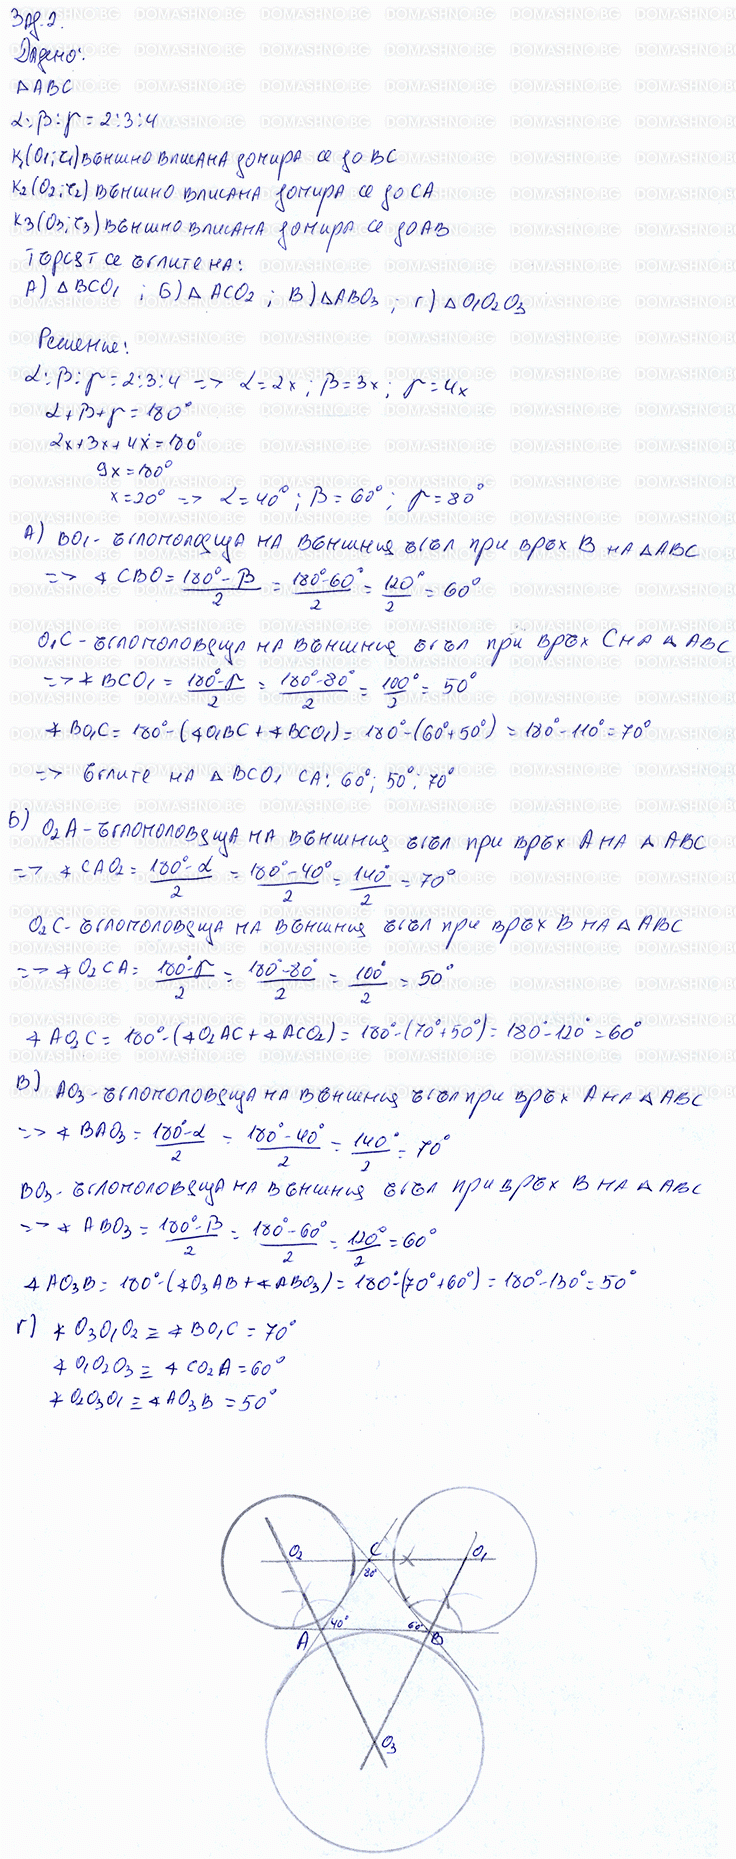 Зад. 2.
Дадено:
△ABC
α:β:γ = 2:3:4
k₁(O₁; r₁) външно вписана допира се до BC
k₂(O₂; r₂) външно вписана допира се до CA
k₃(O₃; r₃) външно вписана допира се до AB
Търсят се ъглите на:
А) △BCO₁ ; Б) △ACO₂ ; В) △ABO₃ ; г) △O₁O₂O₃
Решение:
α:β:γ = 2:3:4 => α=2x ; β=3x ; γ=4x
α+β+γ=180°
2x+3x+4x=180°
9x=180°
x=20° => α=40° ; β=60° ; γ=80°
А) BO₁ - ъглополовяща на външния ъгъл при връх B на △ABC
=> ∢CBO = (180°-β)/2 = (180°-60°)/2 = 120°/2 = 60°
O₁C - ъглополовяща на външния ъгъл при връх C на △ABC
=> ∢BCO₁ = (180°-γ)/2 = (180°-80°)/2 = 100°/2 = 50°
∢BO₁C = 180°-(∢O₁BC+∢BCO₁) = 180°-(60°+50°) = 180°-110° = 70°
=> ъглите на △BCO₁ са: 60°; 50°; 70°
Б) O₂A - ъглополовяща на външния ъгъл при връх A на △ABC
=> ∢CAO₂ = (180°-α)/2 = (180°-40°)/2 = 140°/2 = 70°
O₂C - ъглополовяща на външния ъгъл при връх B на △ABC
=> ∢O₂CA = (180°-γ)/2 = (180°-80°)/2 = 100°/2 = 50°
∢AO₂C = 180°-(∢O₂AC+∢ACO₂) = 180°-(70°+50°) = 180°-120° = 60°
В) AO₃ - ъглополовяща на външния ъгъл при връх A на △ABC
=> ∢BAO₃ = (180°-α)/2 = (180°-40°)/2 = 140°/2 = 70°
BO₃ - ъглополовяща на външния ъгъл при връх B на △ABC
=> ∢ABO₃ = (180°-β)/2 = (180°-60°)/2 = 120°/2 = 60°
∢AO₃B = 180°-(∢O₃AB+∢ABO₃) = 180°-(70°+60°) = 180°-130° = 50°
г) ∢O₃O₁O₂ ≡ ∢BO₁C = 70°
∢O₁O₂O₃ ≡ ∢CO₂A = 60°
∢O₂O₃O₁ ≡ ∢AO₃B = 50°
O₂ C O₁
80°
A 40° 60° B
O₃